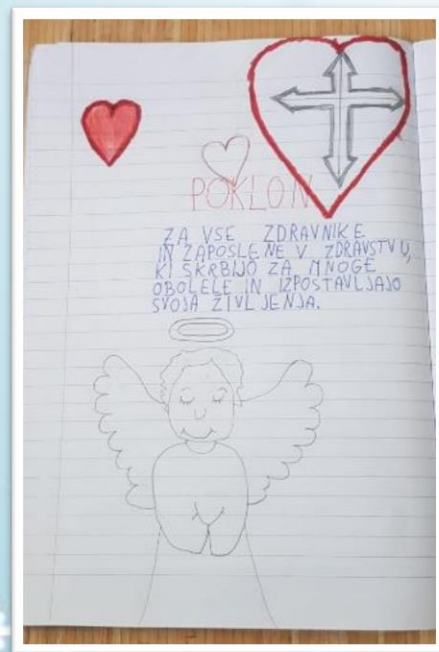 POKLON
ZA VSE ZDRAVNIKE
IN ZAPOSLENE V ZDRAVSTVU,
KI SKRBIJO ZA MNOGE
OBOLELE IN IZPOSTAVLJAJO
SVOJA ŽIVLJENJA.